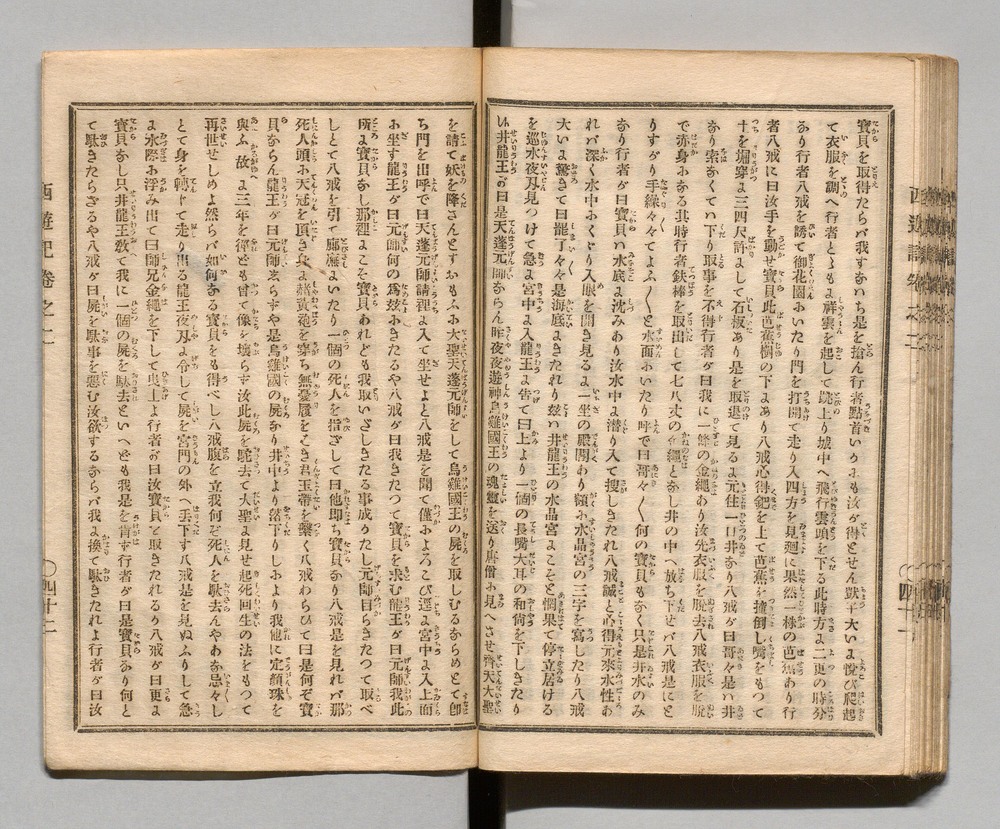 寶貝を取得たらバ我すなハち是を搶ん行者點首いふにも汝が得とせん獃子大いよ悅び爬起
て衣服を調へ行者ともよ祥雲を起して虚上り城中へ飛行雲頭を下る此時方よ二更の時分
あり行者八戒を誘て御花園よいたり門を打開て走り入四方を見廻に果然一株の芭蕉あり行
者八戒に曰汝手を動せ寶貝此芭蕉樹の下よあり八戒心得鈀を上て芭蕉を撞倒し嘴をもつて
土を堀穿よ三四尺許よして石板あり是を取退て見るよ元徃一口井なり八戒が曰哥々是ハ井
なり索なくてハ下り取事を不得行者が曰我に一條の金繩あり汝先衣服を脫去八戒衣服を脫
で赤身よなる其時行者鉄棒を取出して七八丈の金繩となし井の中へ放ち下せバ八戒是にと
りすがり手繰々々てよふ〳〵と水面よいたり呼で曰哥々〳〵何の寶貝もなく只是井水のみ
なり行者が曰寶貝ハ水底よ沈みあり汝水中よ潛り入て搜しきたれ八戒誠と心得元來水性あ
れバ深く水中よくゞり入眼を開き見るよ一坐の殿閣あり額よ水晶宮の三字を寫したり八戒
大いよ驚きて曰罷了々々是海底よきたれり玆ハ井龍王の水晶宮よこそと惘果て停立居ける
を巡水夜刄見つけて急よ宮中よ入龍王よ告て曰上より一個の長嘴大耳の和尙を下しきたり
しハ井龍王が曰是天蓬元帥ならん昨夜夜遊神烏雞國王の魂靈を送り唐僧よ見へさせ齊天大聖
を請て妖を降さんとすおもふよ大聖天蓬元帥をして烏雞國王の屍を取しむるならめとて卽
ち門を出呼で曰天蓬元帥請裡よ入て坐せよと八戒是を聞て僅よよろこび逕よ宮中よ入上面
よ坐す龍王が曰元帥何の爲玆よきたるや八戒が曰我きたつて寶貝を求む龍王が曰元帥我此
所よ寶貝なし那裡よこそ寶貝あれども我取いざしきたる事成りたし元帥自らきたつて取べ
しとて八戒を引て廊廡よいたり一個の死人を指ざして曰他即ち寶貝なり八戒是を見れバ那
死人頭よ天冠を頂き身よ赭黃袍を穿ち無憂履をこき君玉帶を繫く八戒わらひて曰是何ぞ寶
貝ならん龍王が曰元帥志らずや是烏雞國の屍なり井中より落下りしより我他に定顏珠を
與ふ故よ三年を徑ども曾て像を壞らず汝此屍を駝去て大聖よ見せ起死回生の法をもつて
再世せしめよ然らバ如何なる寶貝をも得べし八戒腹を立我何ぞ死人を駄去んやわな忌々し
とて身を轉じて走り出る龍王夜刄よ令して屍を宮門の外へ丟下す八戒是を見ぬふりして急
よ水際よ浮み出て曰師兄金繩を下して曳上よ行者が曰汝寶貝と取きたれるり八戒が曰更よ
寶貝なし只井龍王敎て我に一個の屍を駄去といへども我是を肯ず行者が曰是寶貝なり何と
て駄きたらざるや八戒が曰屍を駄事を惡む汝欲するならバ我よ換て駄きたれよ行者が曰汝
西遊記卷之二
〇四十二